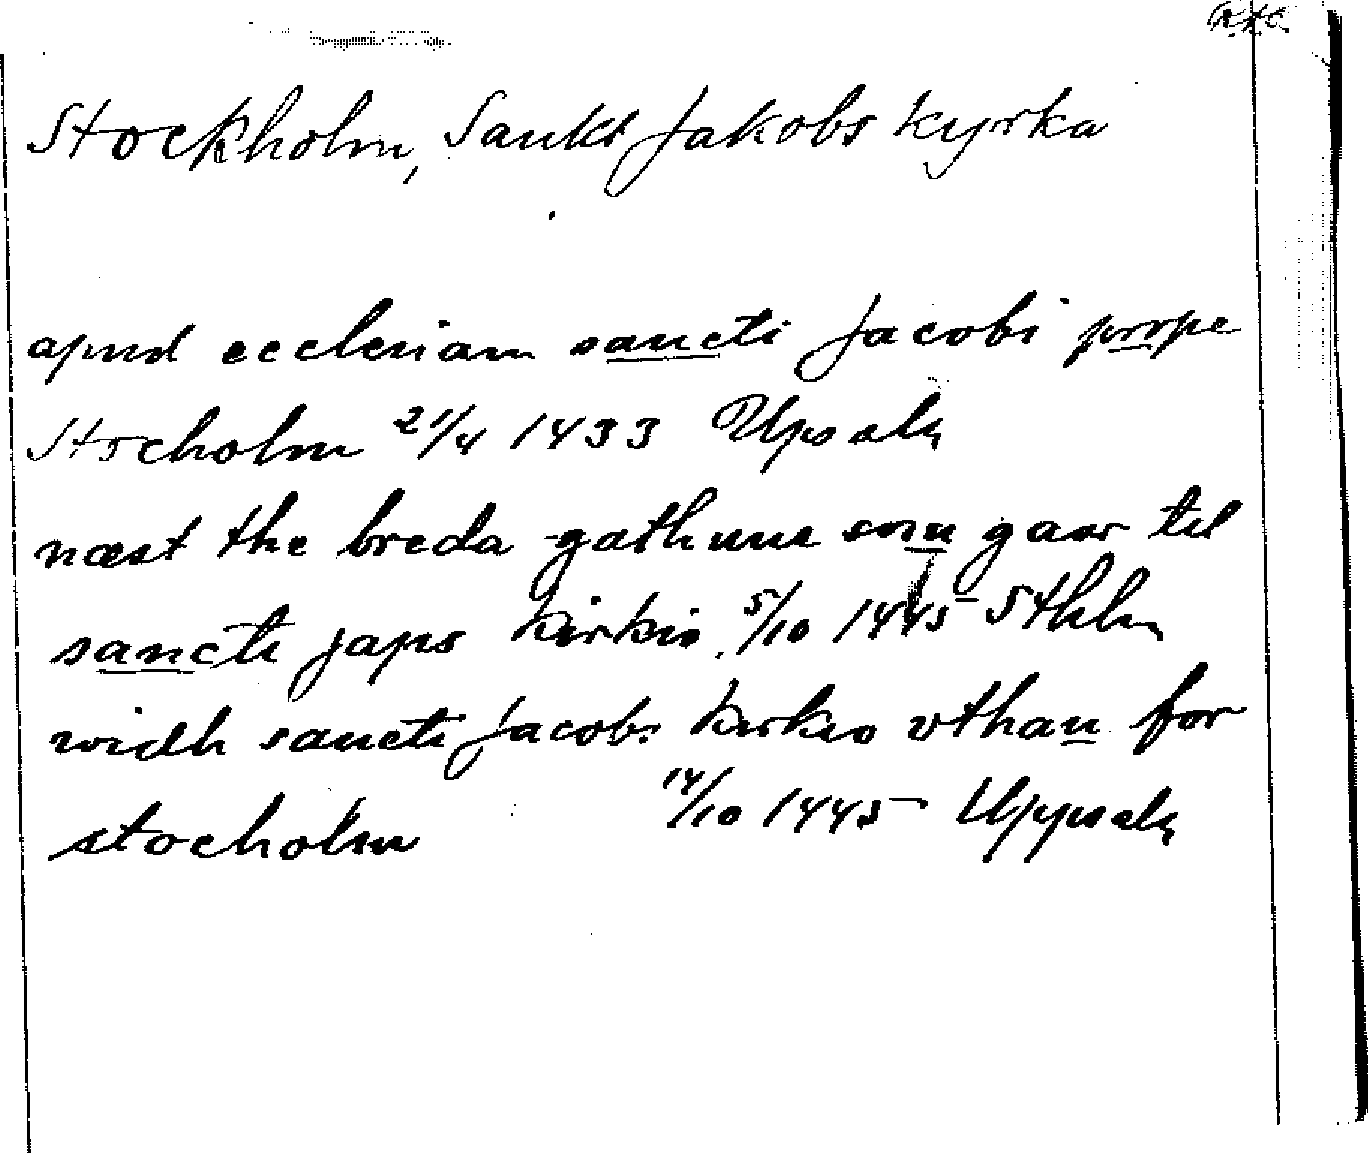 RAC
Stockholm, Sankt Jakobs kyrka
apud ecclesiam sancti Jacobi prope
Stocholm 21/4 1433 Upsala
næst the breda gathune som gaar til
sancte japs kirkio. 5/10 1445 Sthlm
widh sancte Jacobs kirkio vthan for
stocholm 14/10 1445 Uppsala